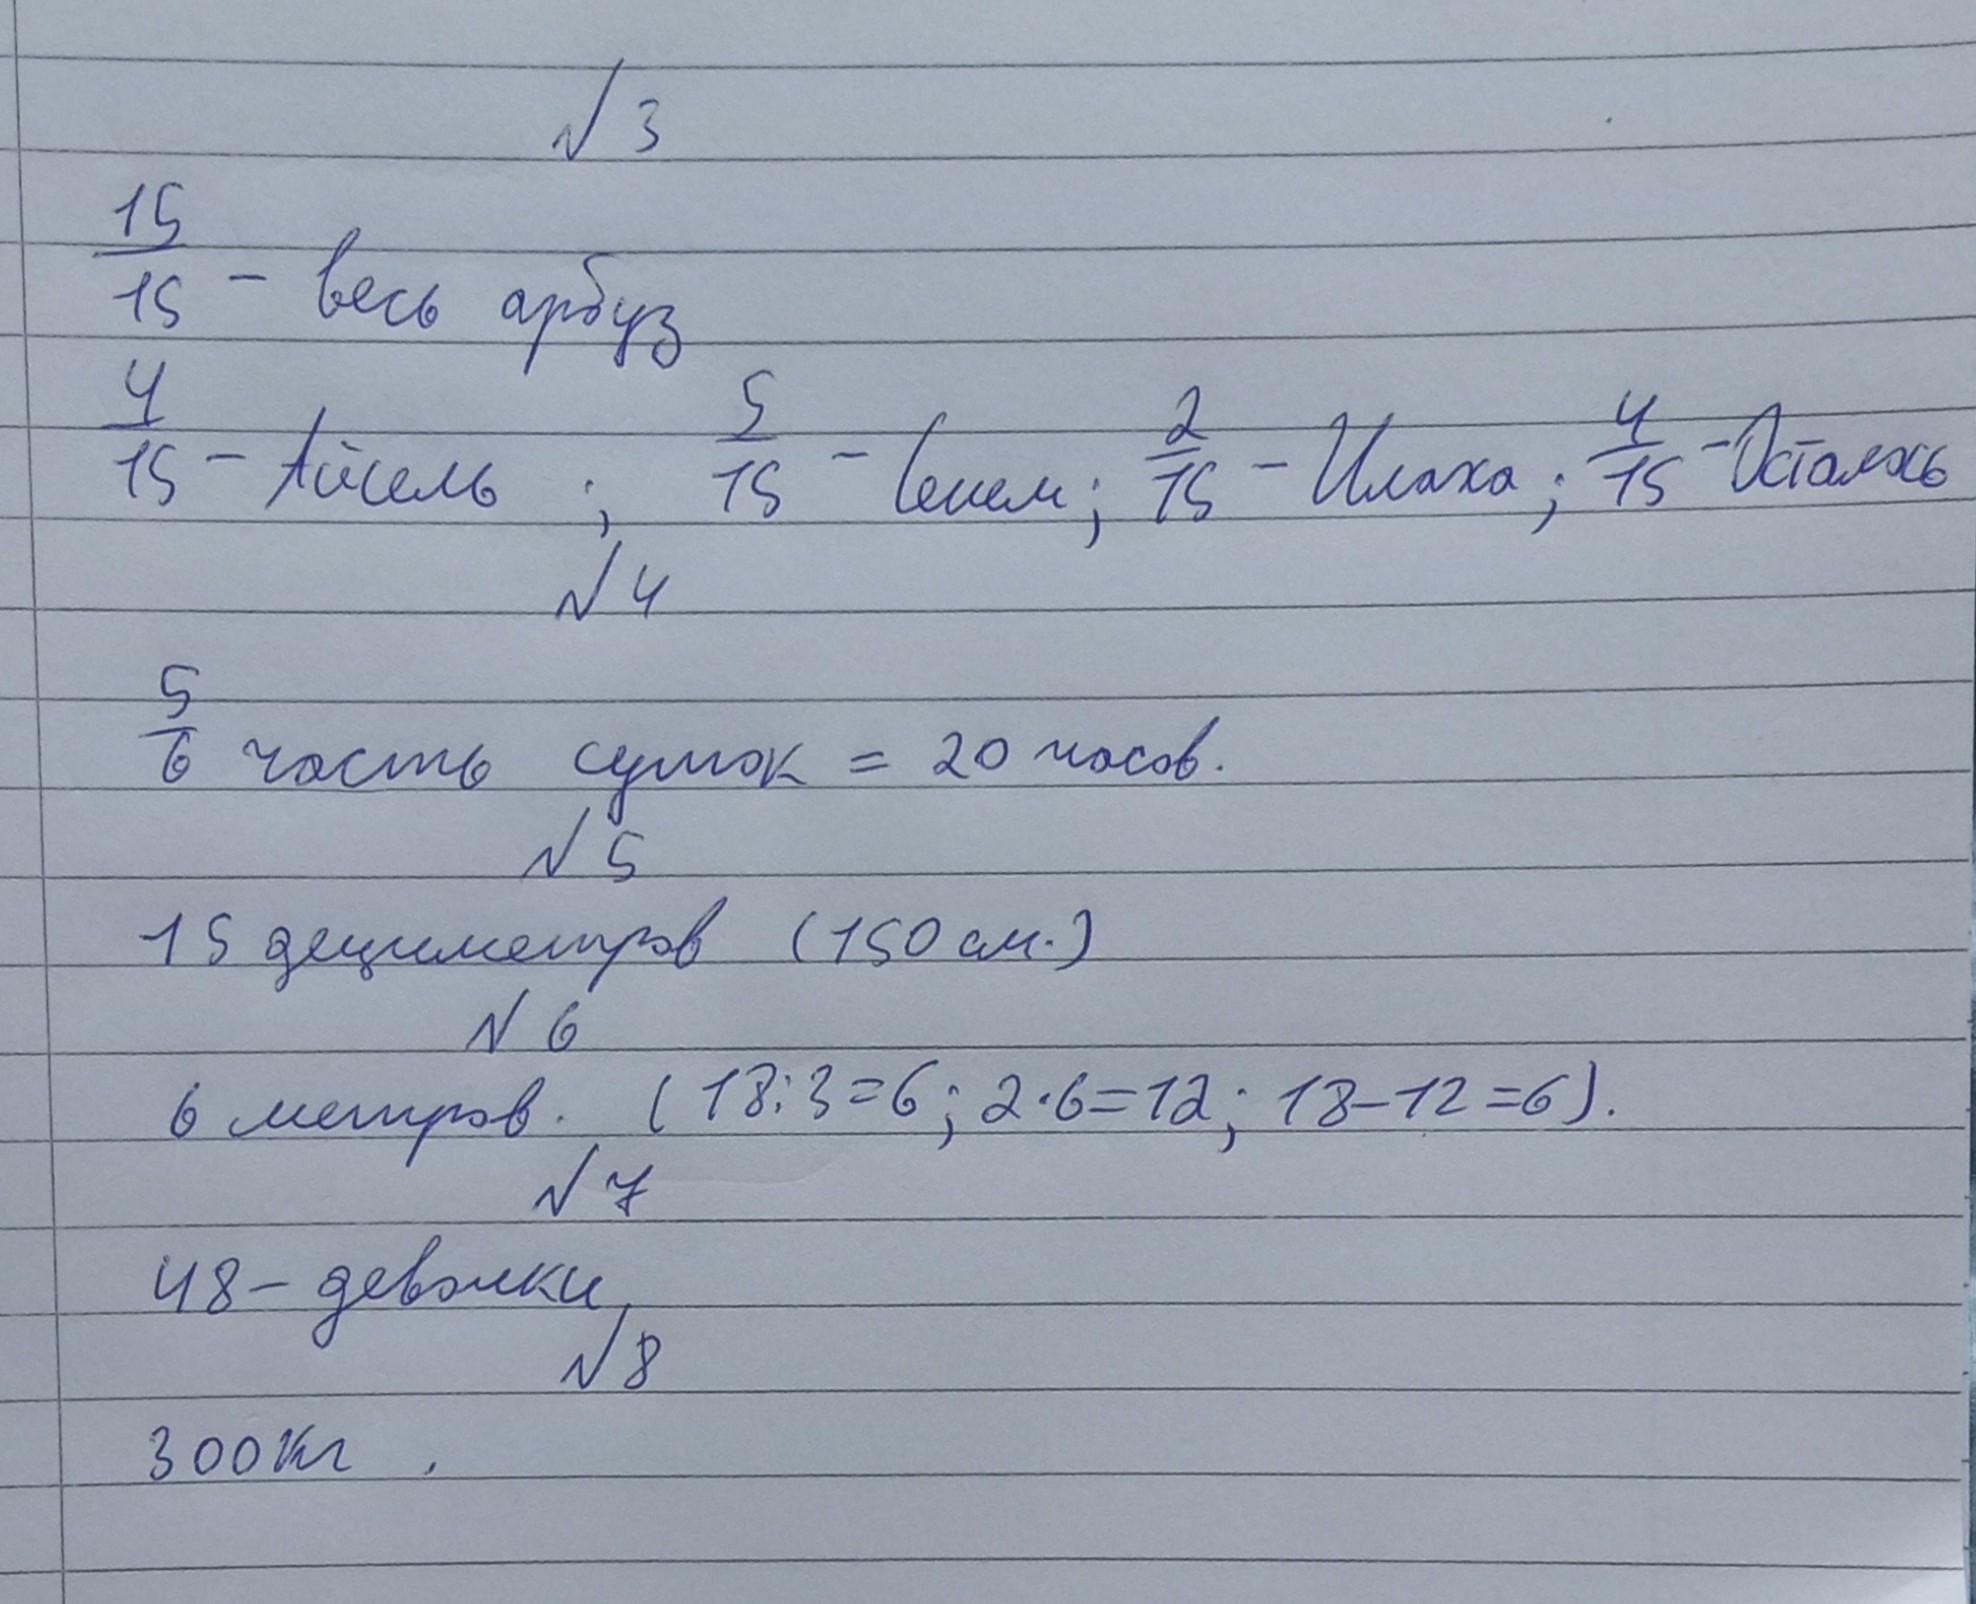 № 3
15/15 - весь арбуз
4/15 - Айсель ; 5/15 - Сенем; 2/15 - Илаха ; 4/15 - Осталось
№ 4
5/6 часть суток = 20 часов.
№ 5
15 дециметров (150 см.)
№ 6
6 метров. (18:3=6; 2·6=12; 18-12=6).
№ 7
48 - девочки
№ 8
300 кг .